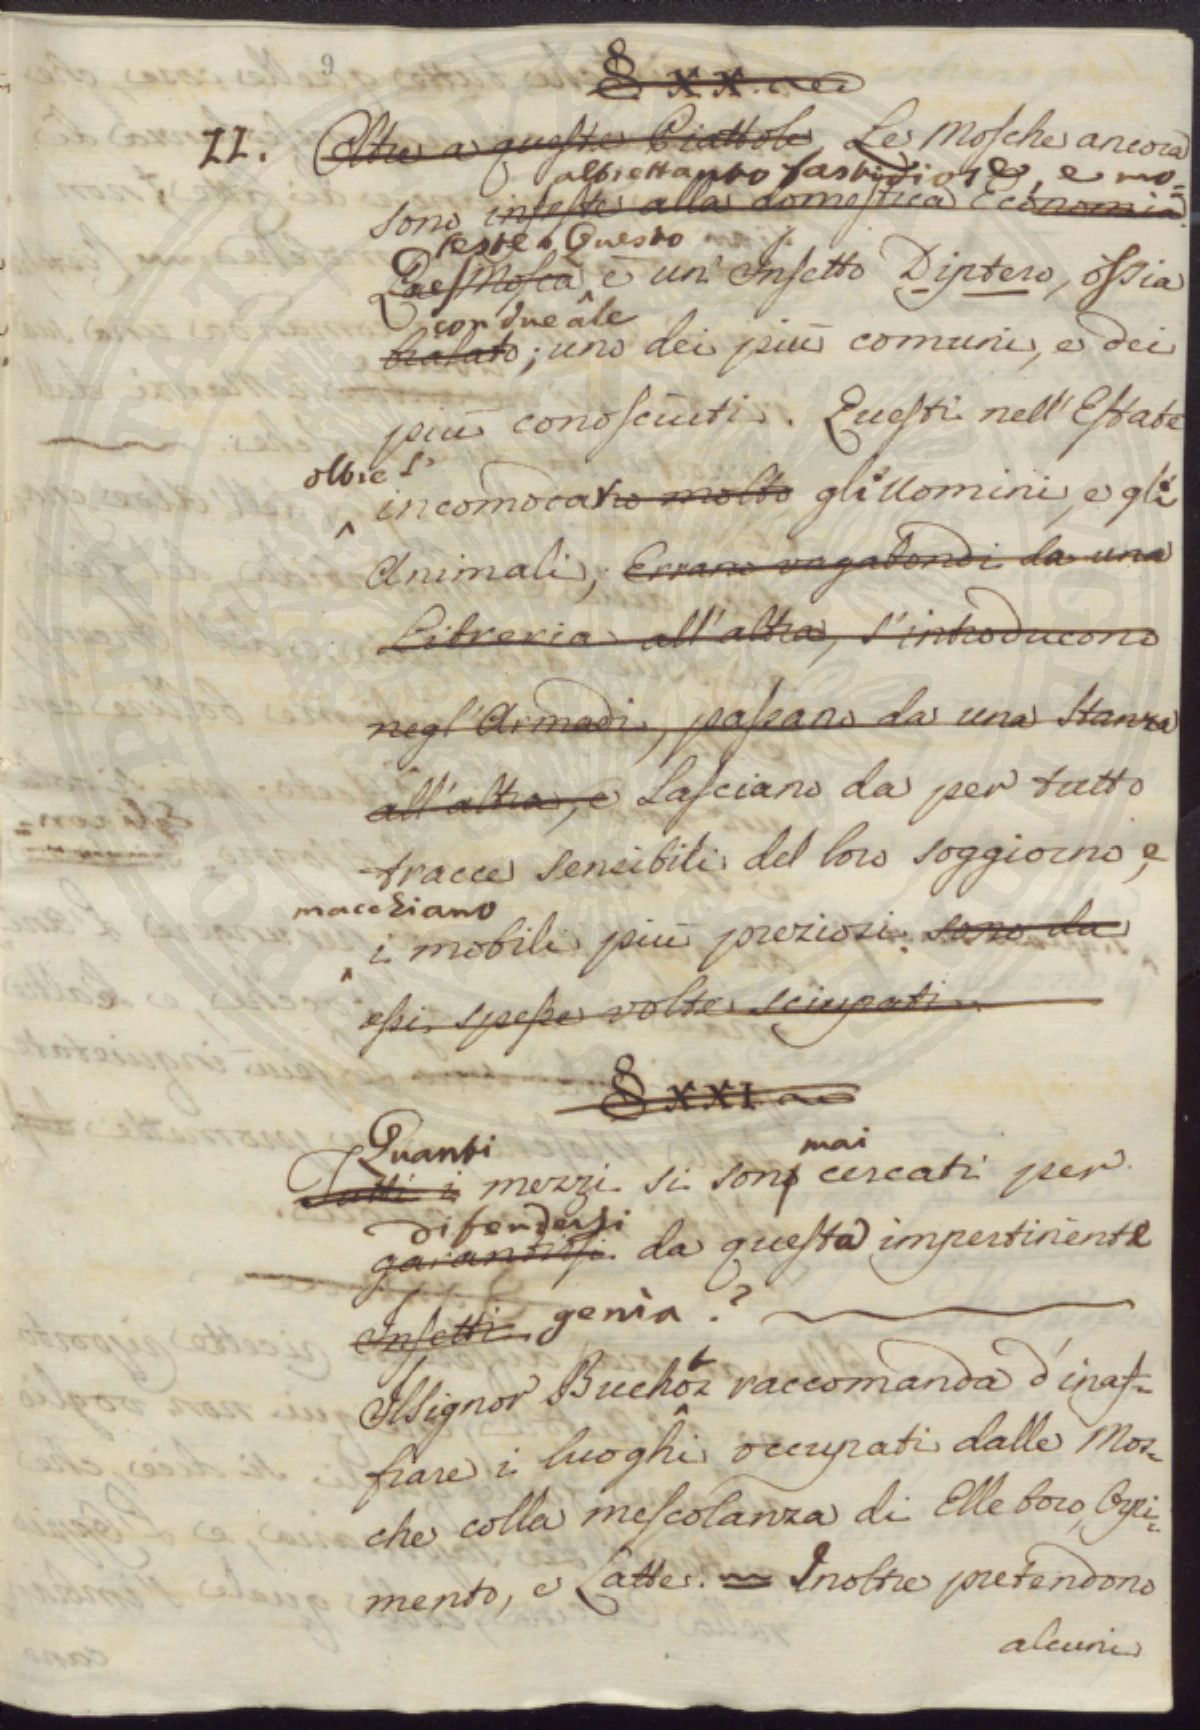 9
§ XX.
II. Oltre a queste Piattole Le Mosche ancora
altrettanto fastidiose, e mo=
sono infeste alla domestica Economia
leste. Questo
La Mosca è un' Insetto Diptero, ossia
con due ale
bialato; uno dei più comuni, e dei
più conosciuti. Questi nell' Estate
oltre l'
incomodano molto gli Uomini, e gli
Animali, Errano vagabondi da una
Libreria all' altra, s'introducono
negl' Armadi, passano da una Stanza
all' altra, e Lasciano da per tutto
tracce sensibili del loro soggiorno, e
macchiano
i mobili più preziosi. sono da
essi spesse volte sciupati.
§ XXI.
Quanti mai
Tutti i mezzi si sono cercati per
difendersi
garantirsi da questa impertinente
Insetti. genìa?
Il Signor Buchoz raccomanda d'inaf=
fiare i luoghi occupati dalle Mos=
che colla mescolanza di Elleboro, Orpi=
mento, e Latte. Inoltre pretendono
alcuni